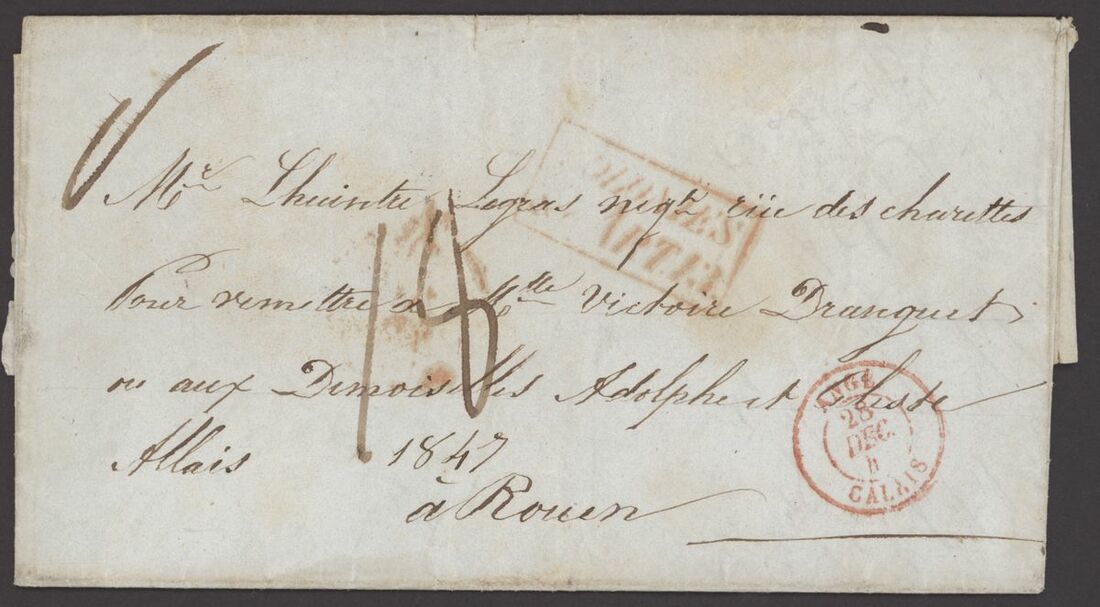 Mr Lheintre Legras negt rüe des charettes
Pour remettre a Mlle Victoire Dranguet
ou aux Demoiselles Adolphe et Celeste
Allais 1847
à Rouen
18
COLONIES
ART.13
ANGL.
28
DEC.
CALAIS